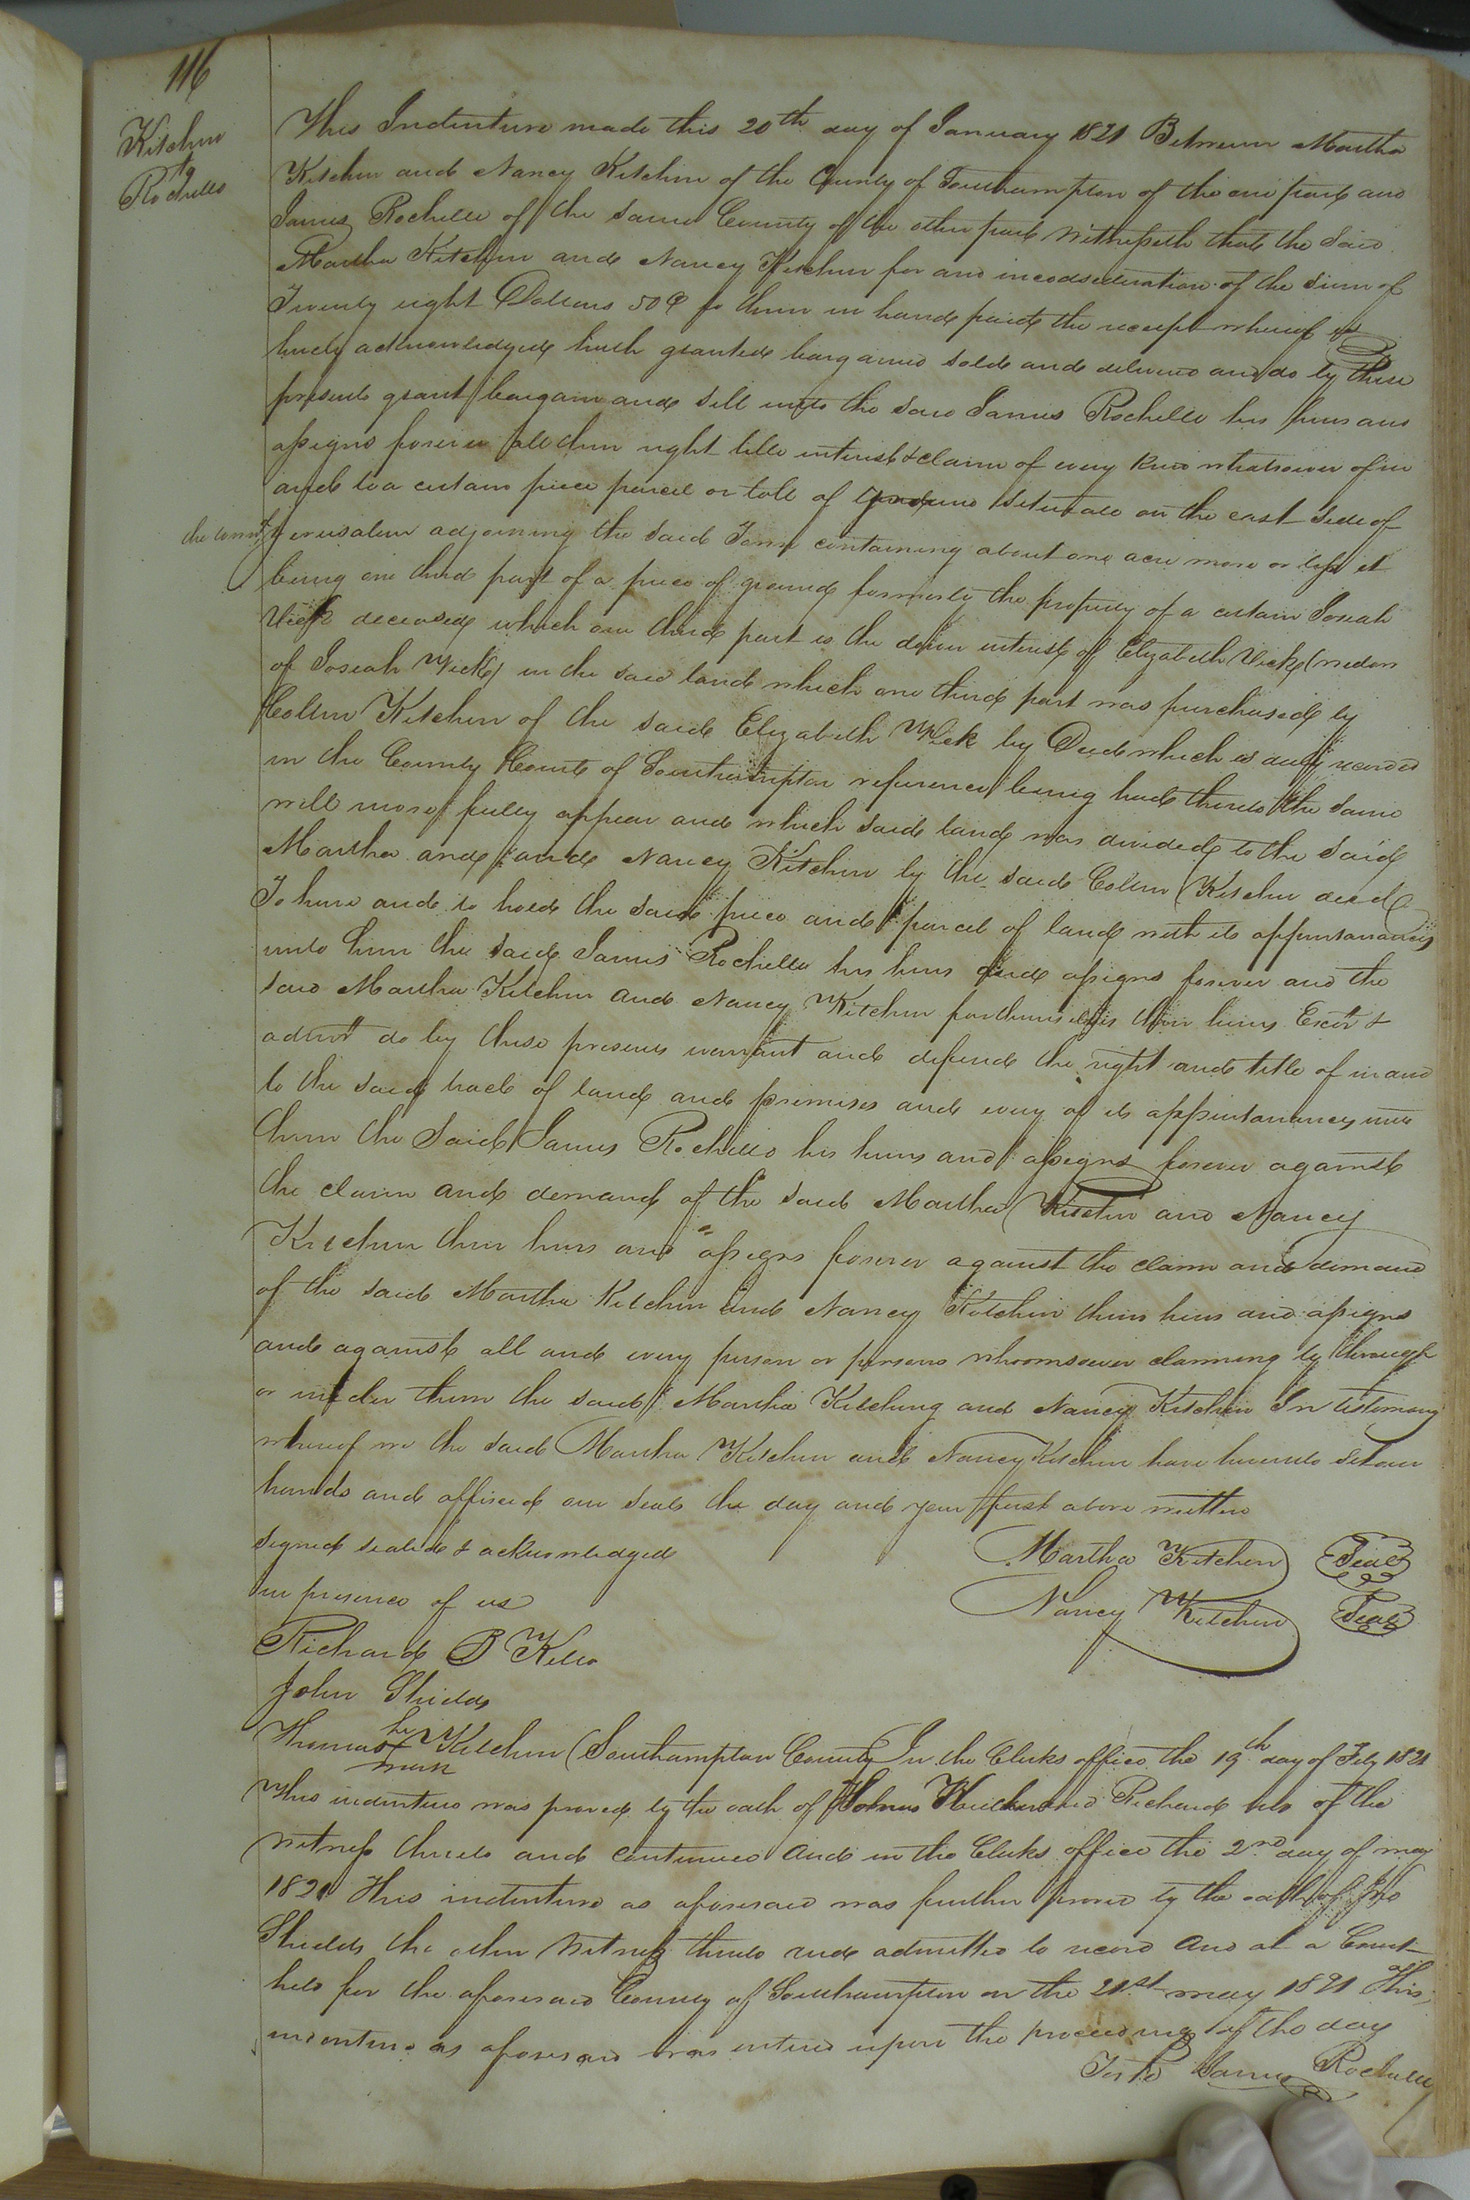 116
Kitchen
to
Rochelle
This Indenture made this 20th day of January 1821 Between Martha
Kitchen and Nancy Kitchen of the County of Southampton of the one part and
James Rochelle of the same County of the other part Witnesseth that the said
Martha Kitchen and Nancy Kitchen for and in consideration of the sum of
Twenty eight Dollars 50 to them in hand paid the receipt whereof is
hereby acknowledged hath granted bargained sold and delivered and do by these
presents grant bargain and sell unto the said James Rochelle his heirs and
assigns forever all their right title interest & claim of every kind whatsoever of in
and to a certain piece parcel or lott of ground situate on the east side of
the town of Jerusalem adjoining the said Town containing about one acre more or less it
being one third part of a piece of ground formerly the property of a certain Josiah
Vick deceased which one third part is the dower interest of Elizabeth Vick (widow
of Josiah Vick) in the said land which one third part was purchased by
Collin Kitchen of the said Elizabeth Vick by Deed which is duly recorded
in the County Court of Southampton reference being had thereto the same
will more fully appear and which said land was divided to the said
Martha and and Nancy Kitchen by the said Collin Kitchen decd
To have and to hold the said piece and parcel of land with its appurtanancys
unto him the said James Rochelle his heirs and assigns forever and the
said Martha Kitchen and Nancy Kitchen for themselves their heirs Exors &
admrs do by these presents warrant and defend the right and title of in and
to the said track of land and premises and every of its appurtanancys unto
him the said James Rochelle his heirs and assigns forever against
the claim and demand of the said Martha Kitchen and Nancy
Kitchen their heirs and assigns forever against the claim and demand
of the said Martha Kitchen and Nancy Kitchen their heirs and assigns
and against all and every person or persons whomsoever claiming by through
or under them the said Martha Kitching and Nancy Kitchen In testimony
whereof we the said Martha Kitchen and Nancy Kitchen have hereunto set our
hands and affixed our seals the day and year first above written
signed sealed & acknowledged
in presence of us
Martha Kitchen Seal
Nancy Kitchen Seal
Richard B Kello
John Shields
his
Thomas X Kitchen
mark
Southampton County In the Clerks office the 19th day of Feby 1821
This indenture was proved by the oath of and Richard of the
witness thereto and continued And in the Clerks office the 2nd day of may
1821 This indenture as aforesaid was further proved by the oath of Jno
Shields the other witness thereto and admitted to record And at a Court
held for the aforesaid County of Southampton on the 21st may 1821 This
indenture as aforesaid was entered upon the proceedings of the day
Teste James Rochelle